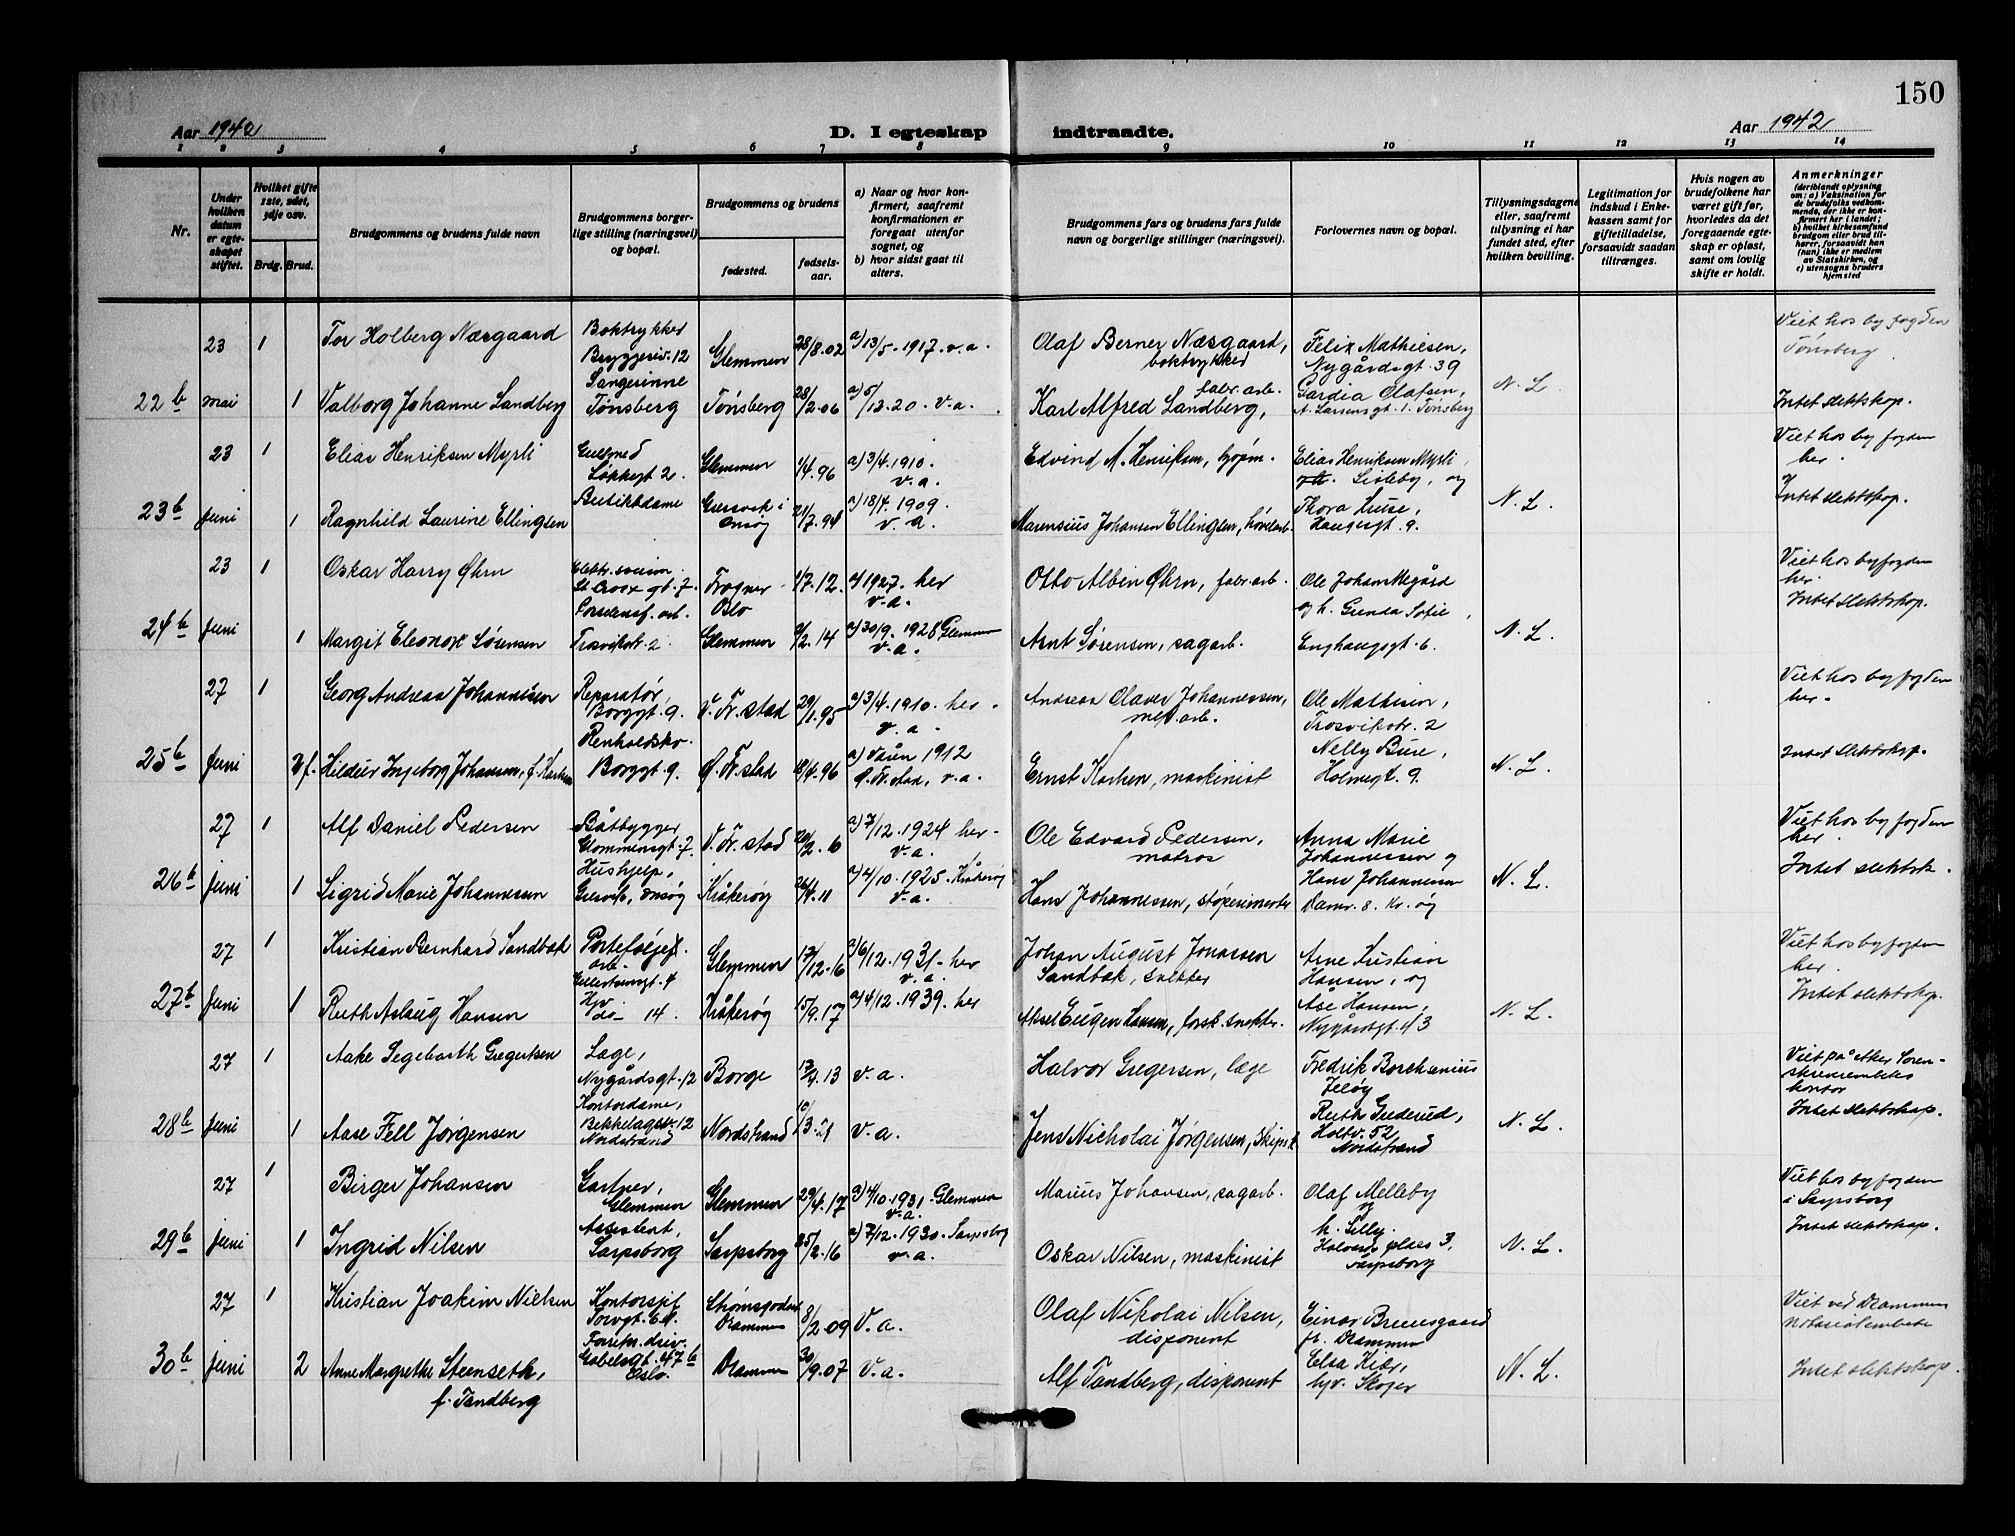 150
Aar 1942
D. I egteskap indtraadte.
Aar 1942
1 2 3 4 5 6 7 8 9 10 11 12 13 14
Nr.
Under hvilken datum er egteskapet stiftet.
Hvilket gifte 1ste, 2det, 3dje osv.
Brdg. Brud.
Brudgommens og brudens fulde navn
Brudgommens borgerlige stilling (næringsvei) og bopæl.
Brudgommens og brudens
fødested.
fødselsaar.
a) Naar og hvor konfirmert, saafremt konfirmationen er foregaat utenfor sognet, og
b) hvor sidst gaat til alters.
Brudgommens fars og brudens fars fulde navn og borgerlige stillinger (næringsvei).
Forlovernes navn og bopæl.
Tillysningsdagene eller, saafremt tillysning ei har fundet sted, efter hvilken bevilling.
Legitimation for indskud i Enkekassen samt for giftetilladelse, forsaavidt saadan tiltrænges.
Hvis nogen av brudefolkene har været gift før, hvorledes da det foregaaende egteskap er opløst, samt om lovlig skifte er holdt.
Anmerkninger
(deriblandt oplysning om: a) Vaksination for de brudefolks vedkommende, der ikke er konfirmert her i landet; b) hvilket kirkesamfund brudgom eller brud tilhører, forsaavidt han (hun) ikke er medlem av Statskirken, og c) utensogns bruders hjemsted
23 1 Tor Holberg Næsgaard Boktrykker Bryggeriv. 12 Glemmen 28/8.02 a) 13/5.1917. v.a. Olaf Berner Næsgaard, boktrykker Felix Mathiesen, Nygårdsgt. 39 Viet hos byfogden Tønsberg.
22 b mai 1 Valborg Johanne Sandberg Sangerinne Tønsberg Tønsberg 28/2.06 a) 5/12.20. v.a. Karl Alfred Sandberg, fabr.arb. Gardia Olafsen, A. Larsensgt. 1. Tønsberg N. L. Intet slektskap.
23 1 Elias Henriksen Myrli Gullsmed Løkkegt 2. Glemmen 1/4.96 a) 3/4.1910. v.a. Edvind M. Henriksen, Elias Henriksen Myrli, Lisleby, og Viet hos byfogden her.
23 b Juni 1 Ragnhild Laurine Ellingsen Butikkdame Gressvik i Onsøy 21/7.94 a) 18/4.1909. v.a. Marensius Johansen Ellingsen, høvelarb. Thora Huse, Haugesgt. 9. N. L. Intet slektskap.
23 1 Oskar Harry Øhrn Elektr. sveisn. St. Croix gt. 7. Frogner Oslo 1/7.12. a) 1927. her v.a. Otto Albin Øhrn, fabr. arb. Ole Johan Megård og h. Gunda Sofie, Viet hos byfogden her.
24 b Juni 1 Margit Eleonore Sørensen Porselensf. arb. Trosvikstr. 2 Glemmen 9/2.14 a) 30/9.1928 Glemmen v.a. Arnt Sørensen, sagarb. Enghaugsgt. 6. N. L. Intet slektskap.
27 1 Georg Andreas Johannessen Reparatør, Borggt. 9. V. Fr. stad 29/1.95 a) 3/4.1910. her. v.a. Andreas Olaves Johannessen, mek. arb. Ole Mathisen, Trosvikstr. 2 Viet hos byfogden her.
25 b Juni 2 f. Hildur Ingeborg Johansen, f. Karlsen Renholdsko. Borggt. 9. Ø. Fr. stad 18/4.96 a) Våren 1912 Ø. Fr. stad, v.a. Ernst Karlsen, maskinist Nelly Buse, Holmegt. 9. N. L. Intet slektskap.
27 1 Alf Daniel Pedersen Båtbygger Glommensgt. 7. V. Fr. stad 20/2.10 a) 7/12.1924 her v.a. Ole Edvard Pedersen, matros Anna Marie Johannessen og Viet hos byfogden her.
26 b Juni 1 Sigrid Marie Johannessen Hushjelp, Gressvik, Onsøy Kråkerøy 26/4.11 a) 4/10.1925. Kråkerøy v.a. Hans Johannessen, støperimester Hans Johannessen Damv. 8. Kr. øy N. L. Intet slektsk.
27 1 Kristian Bernhard Sandbæk Porteføljef. arb. Gellertsensgt. 4 Glemmen 12/12.16 a) 6/12.1931. her v.a. Johan August Jonassen Sandbæk, snekker Arne Kristian Hansen, og Viet hos byfogden her.
27 b Juni 1 Ruth Aslaug Hansen Hjv. do 14. Kråkerøy 15/9.17 a) 4/12.1939. her Aksel Eugen Hansen, forsk. snekker. Åse Hansen, Nygårdsgt. 43 N. L. Intet slektskap.
27 1 Aake Segebarth Gregersen Læge, Nygårdsgt. 12 Borge 12/4.13 v.a. Halvor Gregersen, læge Fredrik Borchsenius Jeløy Viet på Aker Sorenskriverembets kontor
28 b Juni 1 Aase Fell Jørgensen Kontordame, Bekkelagst. 12 Nordstrand Nordstrand 10/3.21 v.a. Jens Nicholai Jørgensen, Skipsk. Ruth Guderud, Holtv. 52 Nordstrand N. L. Intet slektskap.
27 1 Birger Johansen Gartner, Glemmen Glemmen 29/4.17 a) 4/10.1931. Glemmen v.a. Marius Johansen, sagarb. Olaf Melleby og Viet hos byfogden i Sarpsborg
29 b Juni 1 Ingrid Nilsen Assistent, Sarpsborg Sarpsborg 25/2.16 a) 7/12.1930. Sarpsborg v.a. Oskar Nilsen, maskinist h. Silly Halvards plass 3, Sarpsborg N. L. Intet slektskap.
27 1 Kristian Joakim Nielsen Kontorsjef Torvgt. 61. Strømsgodset Drammen 8/2.09 v.a. Olaf Nikolai Nilsen, disponent Einar Bruusgaard fr. Drammen Viet ved Drammens notarialembete
30 b Juni 2 Anne Margrethe Steenseth, f. Tandberg Forretn. driv. Gabelsgt. 47 b Oslo. Drammen 30/9.07 v.a. Alf Tandberg, disponent Elsa Kiær, hjv. Skoger N. L. Intet slektskap.